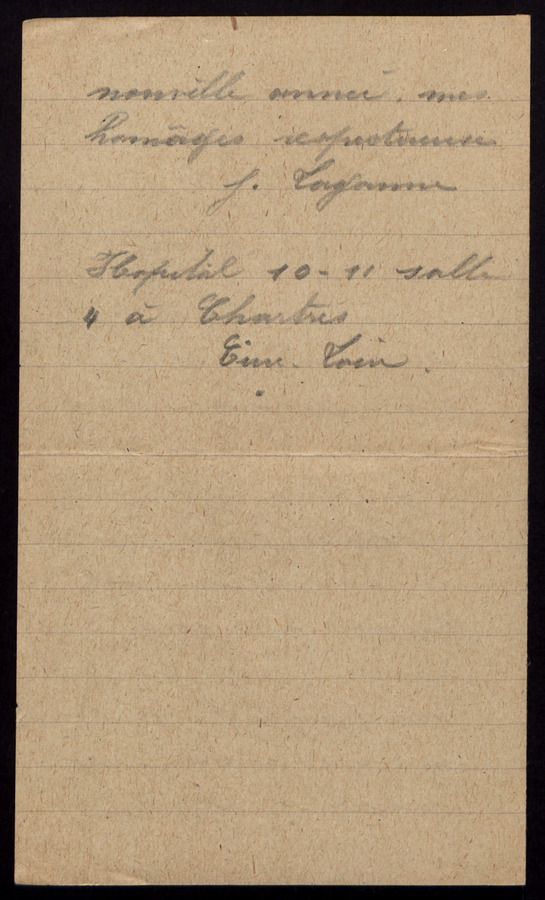 nouvélle anneé. mes
homâges respectueuse
J. Laganne
Hopitâl 10-11 salle
4 à Chartres
Eure. Loir.